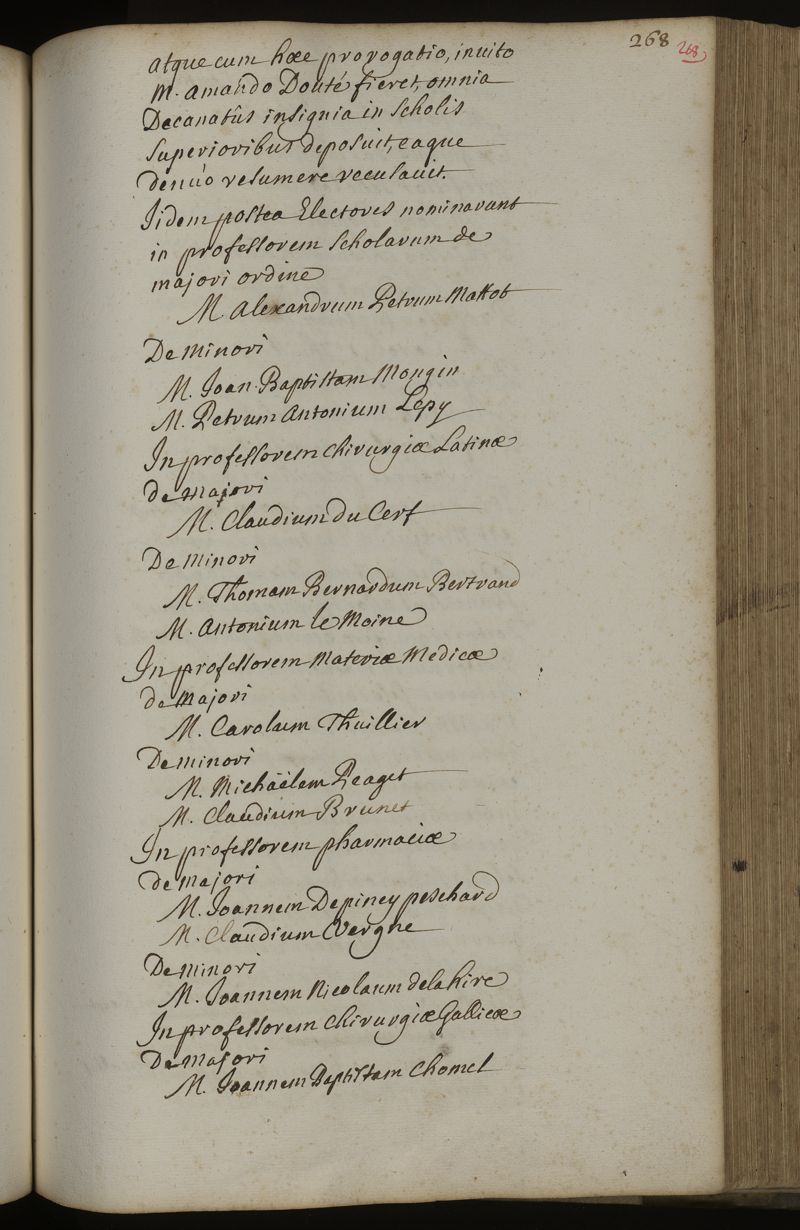 268 268
atque cum hæc prorogatio, invito
M. Amando Douté fieret, omnia
Decanatûs insignia in Scholis
Superioribus deposuit, eaque
denuò resumere recusavit.
Iidem postea Electores nominarunt
in professorem Scholarum de
majori ordine
M. Alexandrum Petrum Mattot
De Minori
M. Joan. Baptistam Mongin
M. Petrum Antonium Lepy
In professorem Chirurgiæ Latinæ
de majori
M. Claudium du Cerf
De Minori
M. Thomam Bernardum Bertrand
M. Antonium le Moine
In professorem Materiæ Medicæ
de Majori
M. Carolum Thuillier
De minori
M. Michäelem Peaget
M. Claudium Brunet
In professorem pharmaciæ
de majori
M. Joannem Depiney peschard
M. Claudium Vergne
De minori
M. Joannem Nicolaum delahire
In professorem Chirurgiæ Gallicæ
De majori
M. Joannem Baptistam Chomel